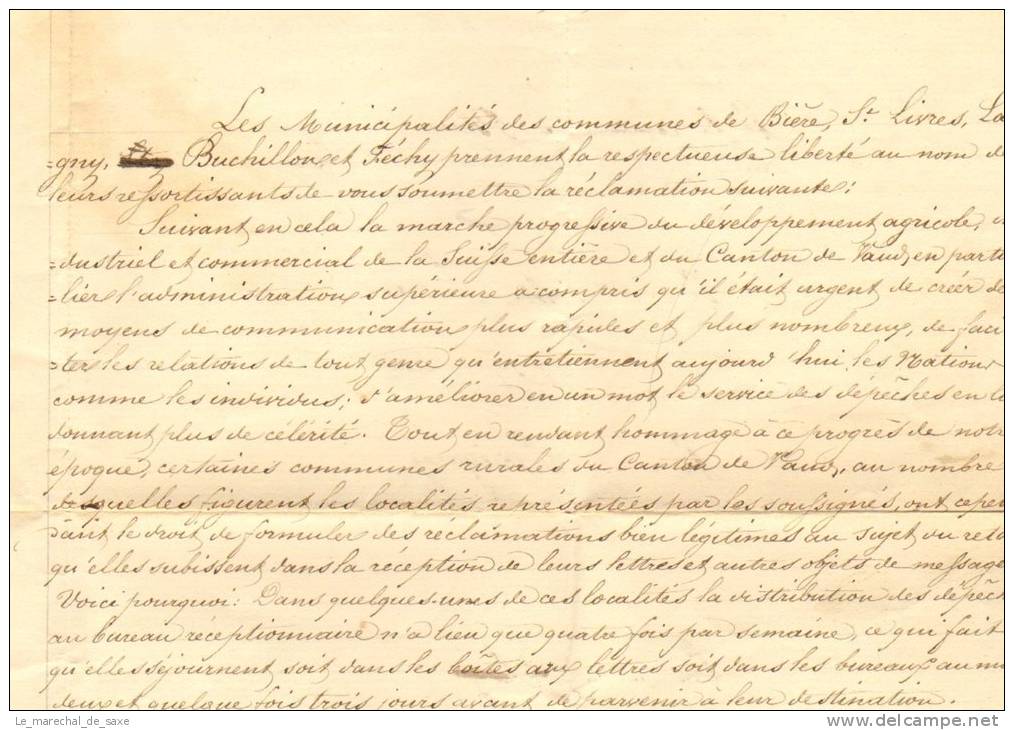 Les Municipalités des communes de Bière, St. Livres, La
=gny, Buchillon et Féchy prennent la respectueuse liberté au nom d
leurs ressortissants de vous soumettre la réclamation suivante:
Suivant en cela la marche progressive du développement agricole,
=dustriel et commercial de la Suisse entière et du Canton de Vaud, en parti
=lier l'administration supérieure a compris qu'il était urgent de créer de
moyens de communication plus rapides et plus nombreux, de faci
=ter les relations de tout genre qu'entretiennent aujourd'hui les Nations
comme les individus; d'améliorer en un mot le service des dépêches en l
donnant plus de célérité. Tout en rendant hommage à ce progrès de notr
époque, certaines communes rurales du Canton de Vaud, au nombre
desquelles figurent les localités représentées par les soussignés, ont cepen
dant le droit de formuler des réclamations bien légitimes au sujet du reta
qu'elles subissent dans la réception de leurs lettres et autres objets de message
Voici pourquoi: Dans quelques-unes de ces localités la distribution des dépêch
au bureau réceptionnaire n'a lieu que quatre fois par semaine, ce qui fait
qu'elles séjournent soit dans les boîtes aux lettres soit dans les bureaux au mo
deux et quelque fois trois jours avant de parvenir à leur destination.
Le_marechal_de_saxe
www.delcampe.net